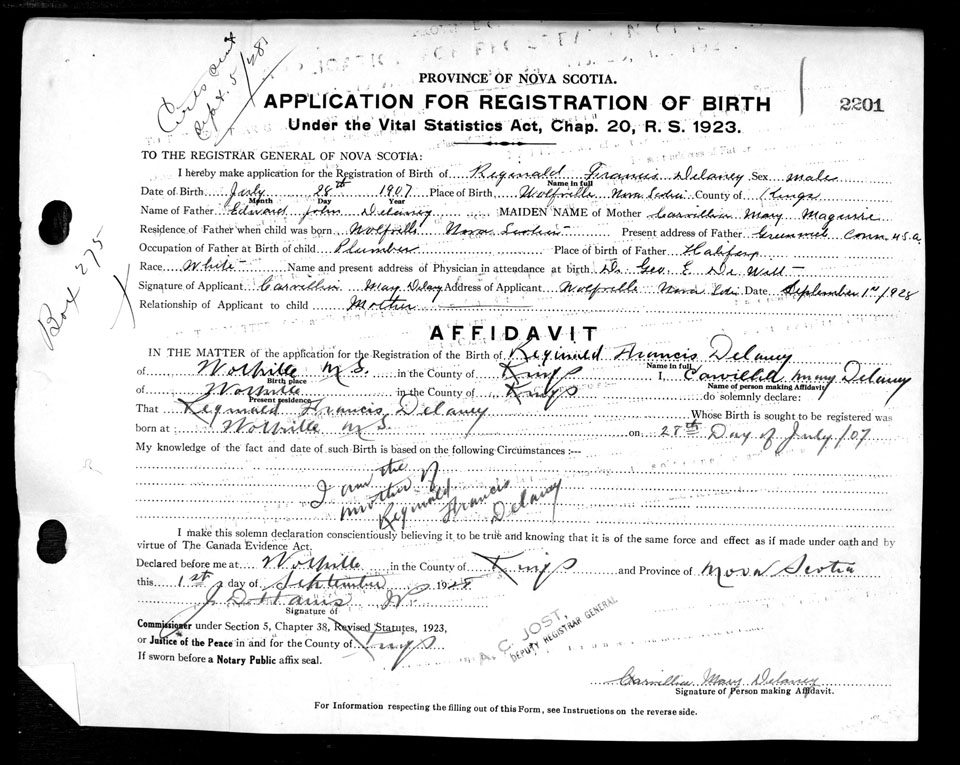 Certs sent
Sept. 5/28
PROVINCE OF NOVA SCOTIA.
APPLICATION FOR REGISTRATION OF BIRTH
2201
Under the Vital Statistics Act, Chap. 20, R. S. 1923.
TO THE REGISTRAR GENERAL OF NOVA SCOTIA:
I hereby make application for the Registration of Birth of Reginald Francis Delaney Sex male
Name in full
Date of Birth July 28th 1907 Place of Birth Wolfville Nova Scotia County of Kings
Month Day Year
Name of Father Edward John Delaney MAIDEN NAME of Mother Carvillia Mary Maguire
Residence of Father when child was born Wolfville Nova Scotia Present address of Father Greenwich Conn U.S.A.
Occupation of Father at Birth of child Plumber Place of birth of Father Halifax
Race White Name and present address of Physician in attendance at birth Dr Geo. E. De Witt
Signature of Applicant Carvillia Mary Delany Address of Applicant Wolfville Nova Scotia Date September 1st/1928
Relationship of Applicant to child Mother
Box 275
AFFIDAVIT
IN THE MATTER of the application for the Registration of the Birth of Reginald Francis Delaney
Name in full
of Wolfville N.S. in the County of Kings I, Carvillia Mary Delaney
Birth place Name of person making Affidavit
of Wolfville in the County of Kings do solemnly declare:
Present residence
That Reginald Francis Delaney Whose Birth is sought to be registered was
born at Wolfville N.S. on 28th Day of July /07
My knowledge of the fact and date of such Birth is based on the following Circumstances :--
I am the
mother of
Reginald Francis
Delaney
I make this solemn declaration conscientiously believing it to be true and knowing that it is of the same force and effect as if made under oath and by
virtue of The Canada Evidence Act.
Declared before me at Wolfville in the County of Kings and Province of Nova Scotia
this 1st day of September 1928
Signature of
Commissioner under Section 5, Chapter 38, Revised Statutes, 1923,
or Justice of the Peace in and for the County of Kings
If sworn before a Notary Public affix seal.
A. C. JOST,
DEPUTY REGISTRAR GENERAL
Carvillia Mary Delaney
Signature of Person making Affidavit.
For Information respecting the filling out of this Form, see Instructions on the reverse side.